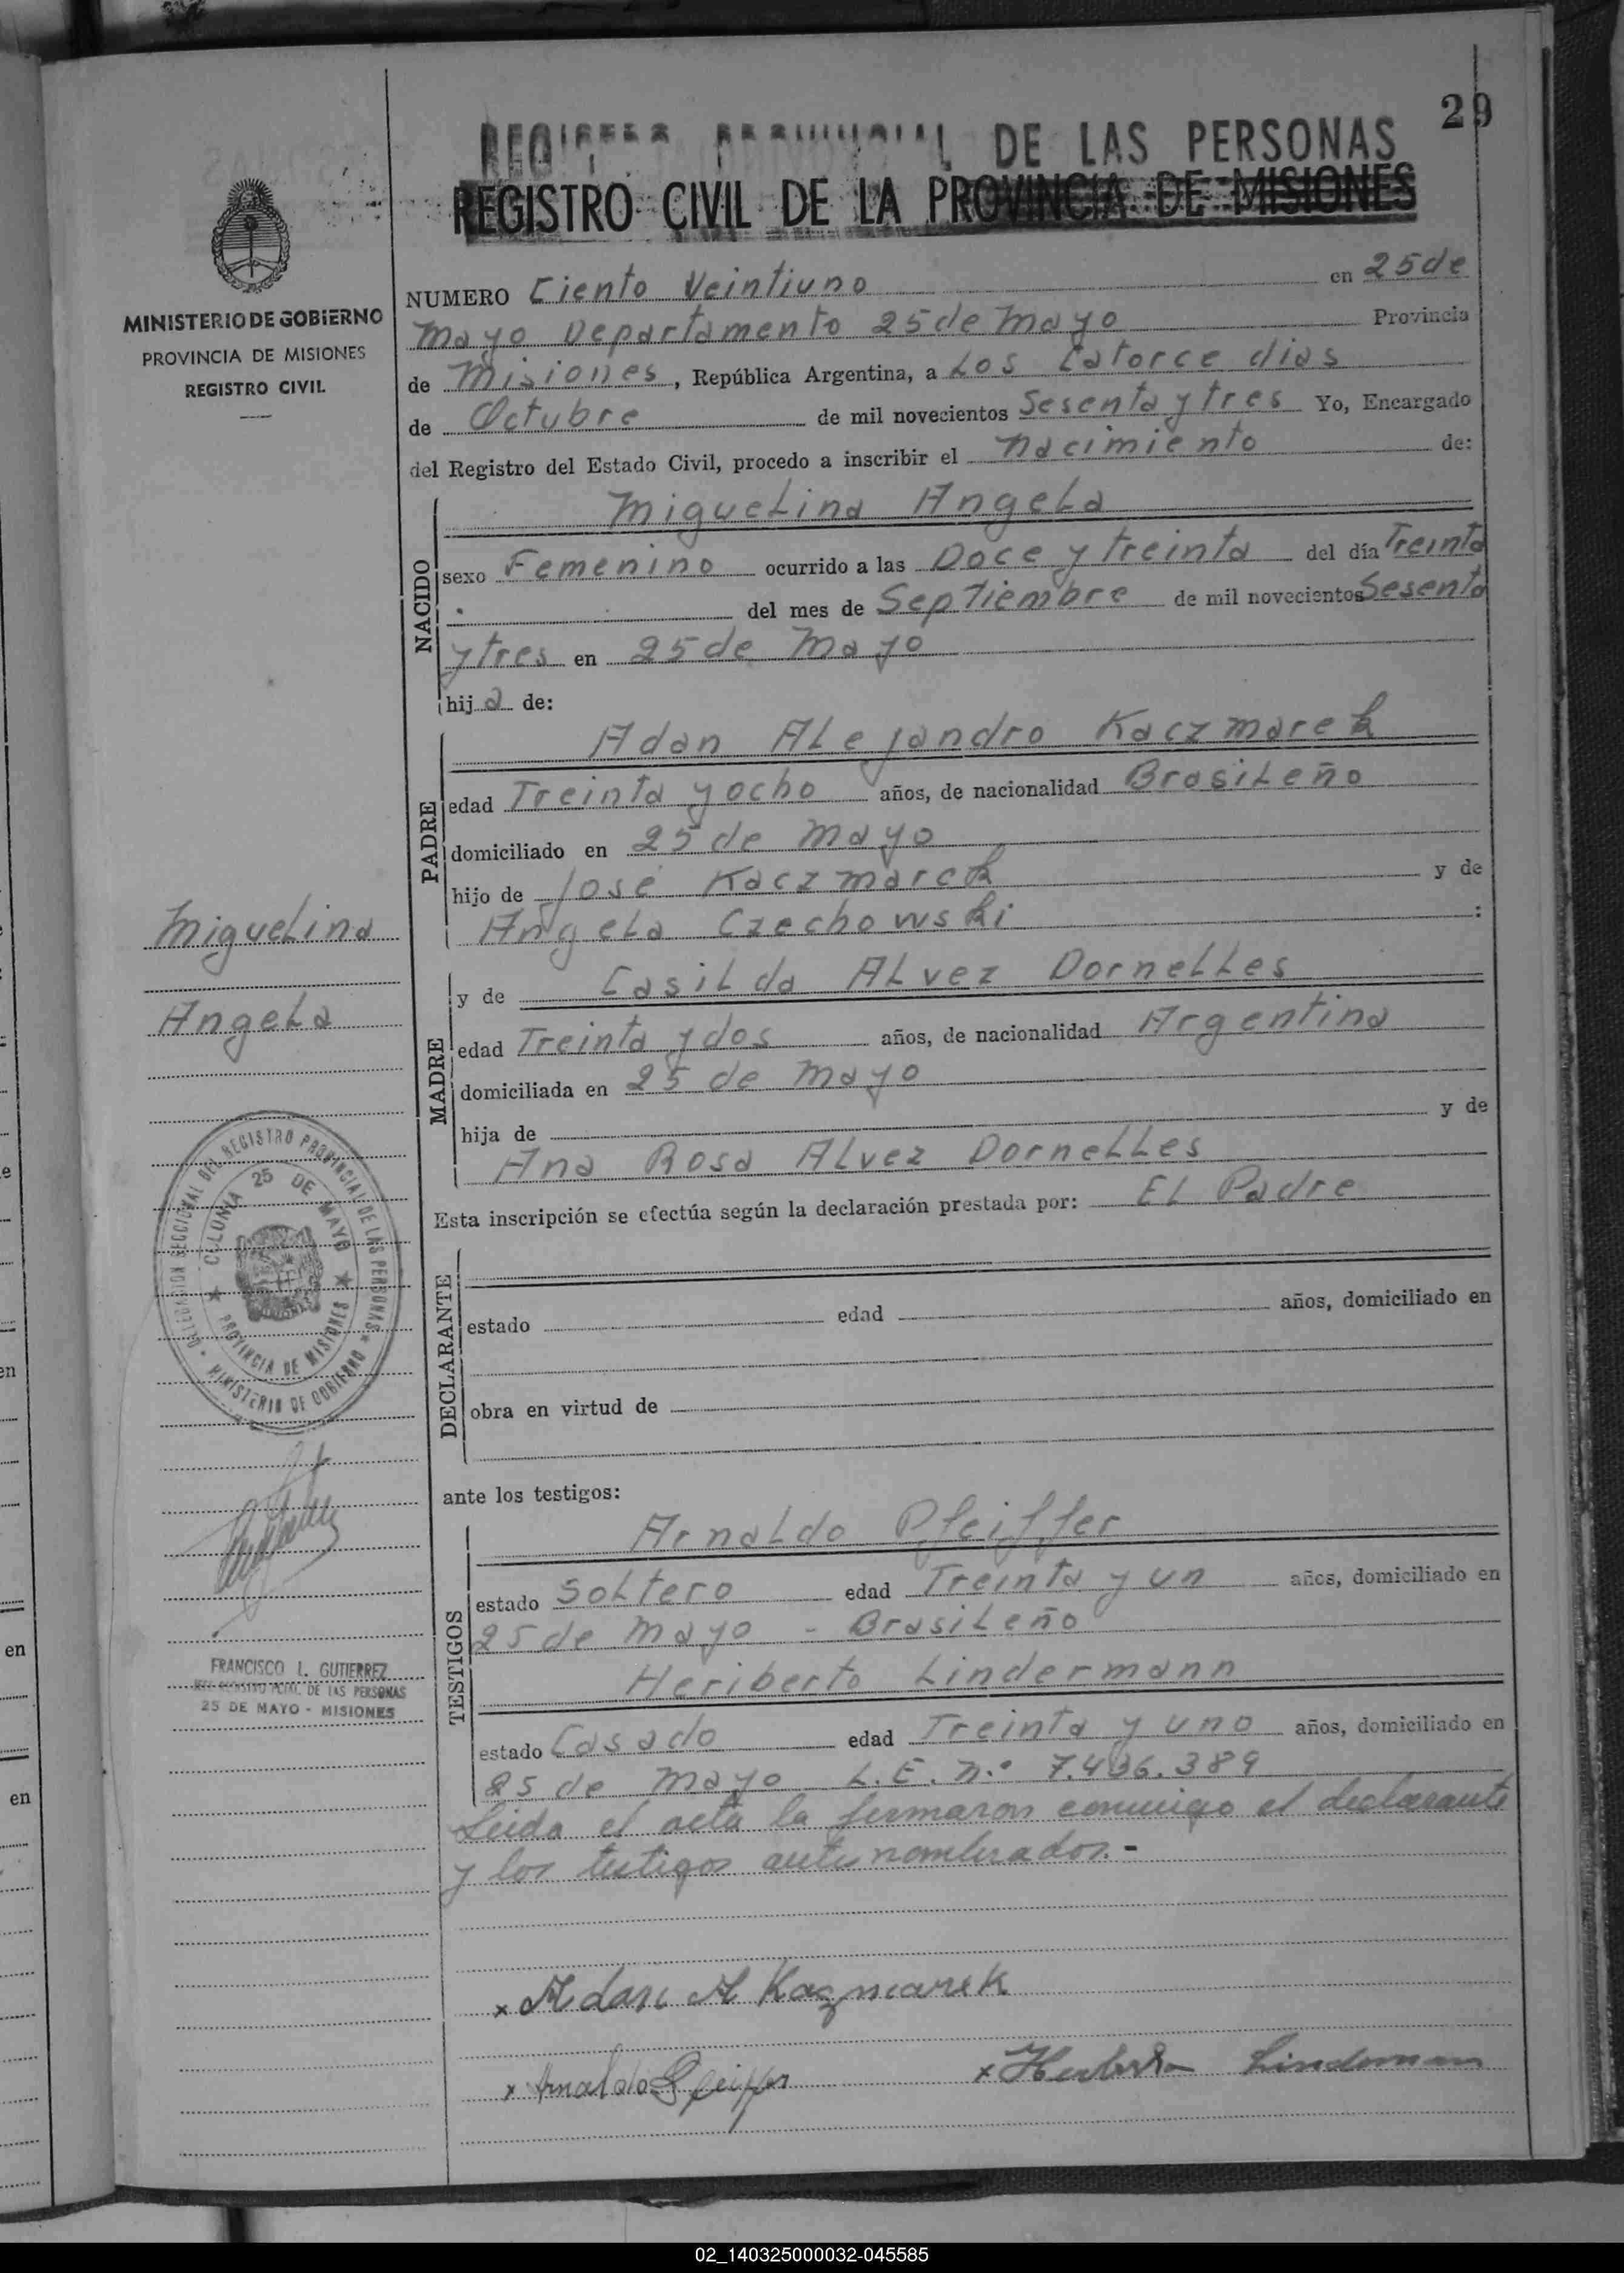 29
REGISTRO PROVINCIAL DE LAS PERSONAS
REGISTRO CIVIL DE LA PROVINCIA DE MISIONES
MINISTERIO DE GOBIERNO
PROVINCIA DE MISIONES
REGISTRO CIVIL
NUMERO Ciento Veintiuno en 25 de
Mayo Departamento 25 de Mayo Provincia
de Misiones, República Argentina, a Los Catorce dias
de Octubre de mil novecientos Sesenta y tres Yo, Encargado
del Registro del Estado Civil, procedo a inscribir el nacimiento de:
NACIDO
Miguelina Angela
sexo Femenino ocurrido a las Doce y treinta del día Treinta
del mes de Septiembre de mil novecientos Sesenta
y tres en 25 de Mayo
hija de:
PADRE
Adan Alejandro Kaczmarek
edad Treinta y ocho años, de nacionalidad Brasileño
domiciliado en 25 de Mayo
hijo de José Kaczmarek y de
Angela Czechowski :
MADRE
y de Casilda Alvez Dornelles
edad Treinta y dos años, de nacionalidad Argentina
domiciliada en 25 de Mayo
hija de y de
Ana Rosa Alvez Dornelles
Esta inscripción se efectúa según la declaración prestada por: El Padre
DECLARANTE
estado edad años, domiciliado en
obra en virtud de
ante los testigos:
TESTIGOS
Arnaldo Pfeiffer
estado Soltero edad Treinta y un años, domiciliado en
25 de Mayo - Brasileño
Heriberto Lindermann
estado Casado edad Treinta y uno años, domiciliado en
25 de Mayo L.E. n.° 7.436.389
Leida el acta la firmaron conmigo el declarante
y los testigos antes nombrados.-
x Adan A Kaczmarek
x Arnaldo Pfeiffer
x Heriberto Linderman
Miguelina
Angela
DELEGACION SECCIONAL DEL REGISTRO PROVINCIAL DE LAS PERSONAS * MINISTERIO DE GOBIERNO
COLONIA 25 DE MAYO
PROVINCIA DE MISIONES
FRANCISCO L. GUTIERREZ
REGISTRO PCIAL. DE LAS PERSONAS
25 DE MAYO - MISIONES
en
en
en
02_140325000032-045585